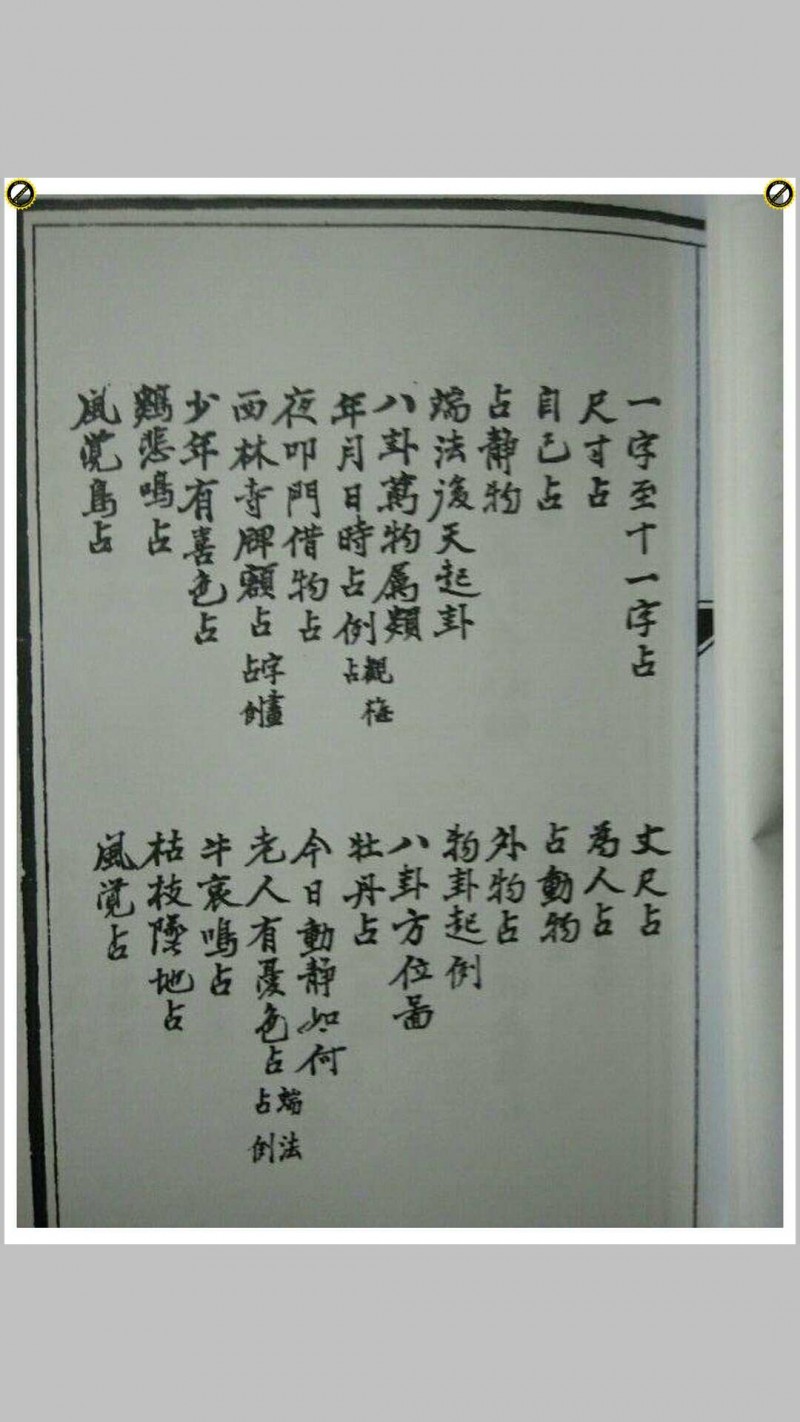 一字至十一字占
丈尺占
尺寸占
為人占
自己占
占動物
占静物
外物占
端法後天起卦
物卦起例
八卦萬物属類
八卦方位啚
年月日時占例 觀梅占
牡丹占
夜叩門借物占
今日動静如何
西林寺牌額占 字畫占例
老人有憂色占 端法占例
少年有喜色占
牛哀鳴占
鷄悲鳴占
枯枝墜地占
風覺鳥占
風覺占